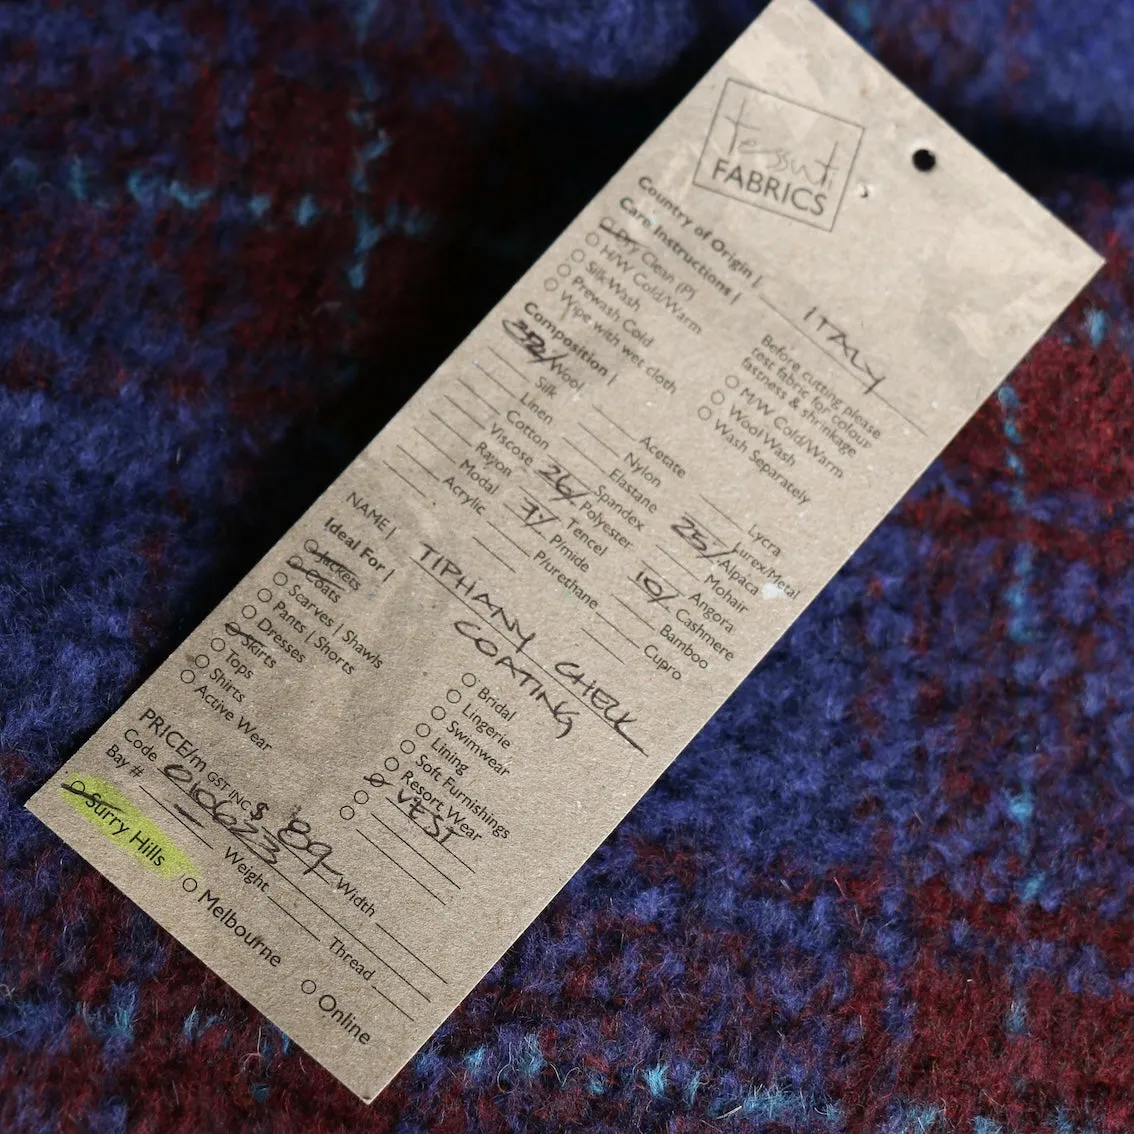 tessuti
FABRICS
Country of Origin | ITALY
Care Instructions |
Dry Clean (P)
H/W Cold/Warm
Silk Wash
Prewash Cold
Wipe with wet cloth
Before cutting please
test fabric for colour
fastness & shrinkage
M/W Cold/Warm
Wool Wash
Wash Separately
Composition |
32% Wool
Silk
Linen
Cotton
Viscose
Rayon
Modal
Acrylic
Acetate
Nylon
Elastane
Spandex
26% Polyester
Tencel
7% P/mide
P/urethane
Lycra
Lurex/Metal
25% Alpaca
Mohair
Angora
10% Cashmere
Bamboo
Cupro
NAME | TIPHANY CHECK
COATING
Ideal For |
Jackets
Coats
Scarves | Shawls
Pants | Shorts
Dresses
Skirts
Tops
Shirts
Active Wear
Bridal
Lingerie
Swimwear
Lining
Soft Furnishings
Resort Wear
VEST
PRICE/m GST INC $ 89
Code 010623 Width
Bay # Weight Thread
Surry Hills Melbourne Online